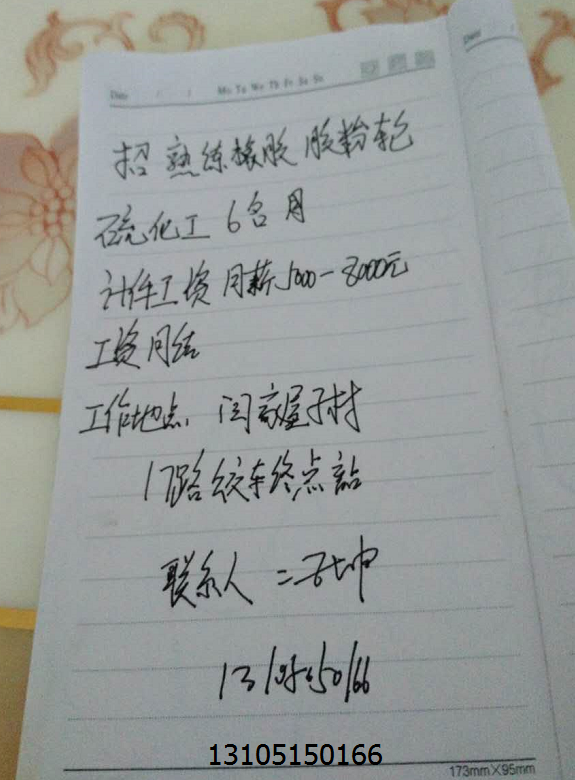 Date / /
Mo Tu We Th Fr Sa Su
招 熟练橡胶 胶粉轮
硫化工 6名 月
计件工资 月薪5000-8000元
工资月结
工作地点 闫家屋子村
17路 终点站
联系人
13105150166
13105150166
173mm×95mm